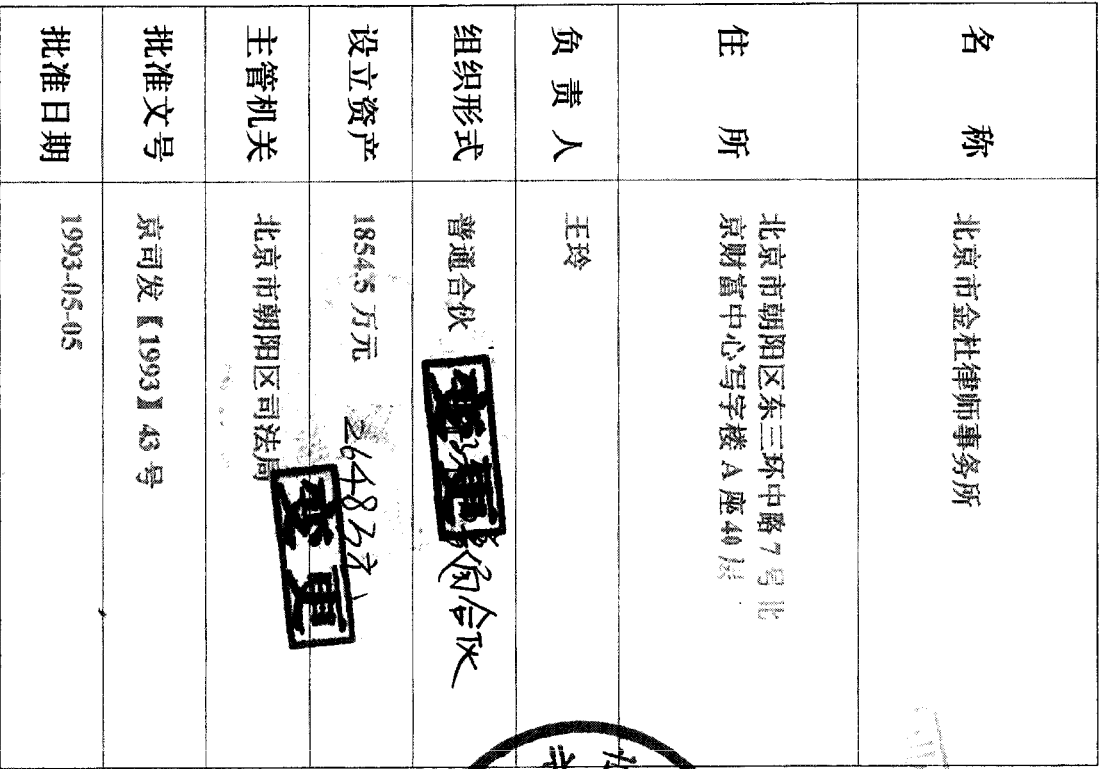 名 称
北京市金杜律师事务所
住 所
北京市朝阳区东三环中路 7 号北
京财富中心写字楼 A 座 40 层
负 责 人
王玲
组织形式
普通合伙
变更
合伙
设立资产
1854.5 万元
2648
主管机关
北京市朝阳区司法局
变更
批准文号
京司发【1993】43 号
批准日期
1993-05-05